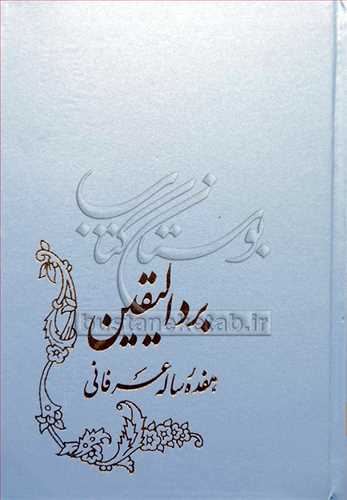 بوستان کتاب
برد الیقین
bustaneketab.ir
هفده رساله عرفانی